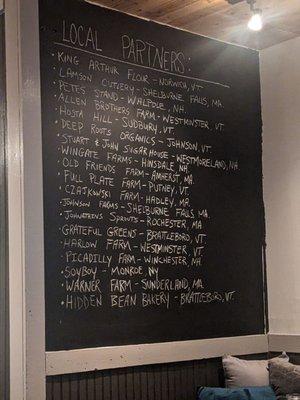 LOCAL PARTNERS:
· KING ARTHUR FLOUR - NORWICH, VT
· LAMSON CUTLERY - SHELBURNE FALLS, MA.
· PETES STAND - WALPOLE, NH.
· ALLEN BROTHERS FARM - WESTMINSTER, VT
· HOSTA HILL - SUDBURY, VT.
· DEEP ROOTS ORGANICS - JOHNSON, VT.
· STUART & JOHN SUGARHOUSE - WESTMORELAND, NH
· WINGATE FARMS - HINSDALE, NH.
· OLD FRIENDS FARM - AMHERST, MA
· FULL PLATE FARM - PUTNEY, VT.
· CZAJKOWSKI FARM - HADLEY, MA.
· JOHNSON FARMS - SHELBURNE FALLS MA.
· JONATHANS SPROUTS - ROCHESTER, MA
· GRATEFUL GREENS - BRATTLEBORO, VT.
· HARLOW FARM - WESTMINSTER, VT.
· PICADILLY FARM - WINCHESTER, NH.
· SOYBOY - MONROE NY
· WARNER FARM - SUNDERLAND, MA.
· HIDDEN BEAN BAKERY - BRATTLEBORO, VT.